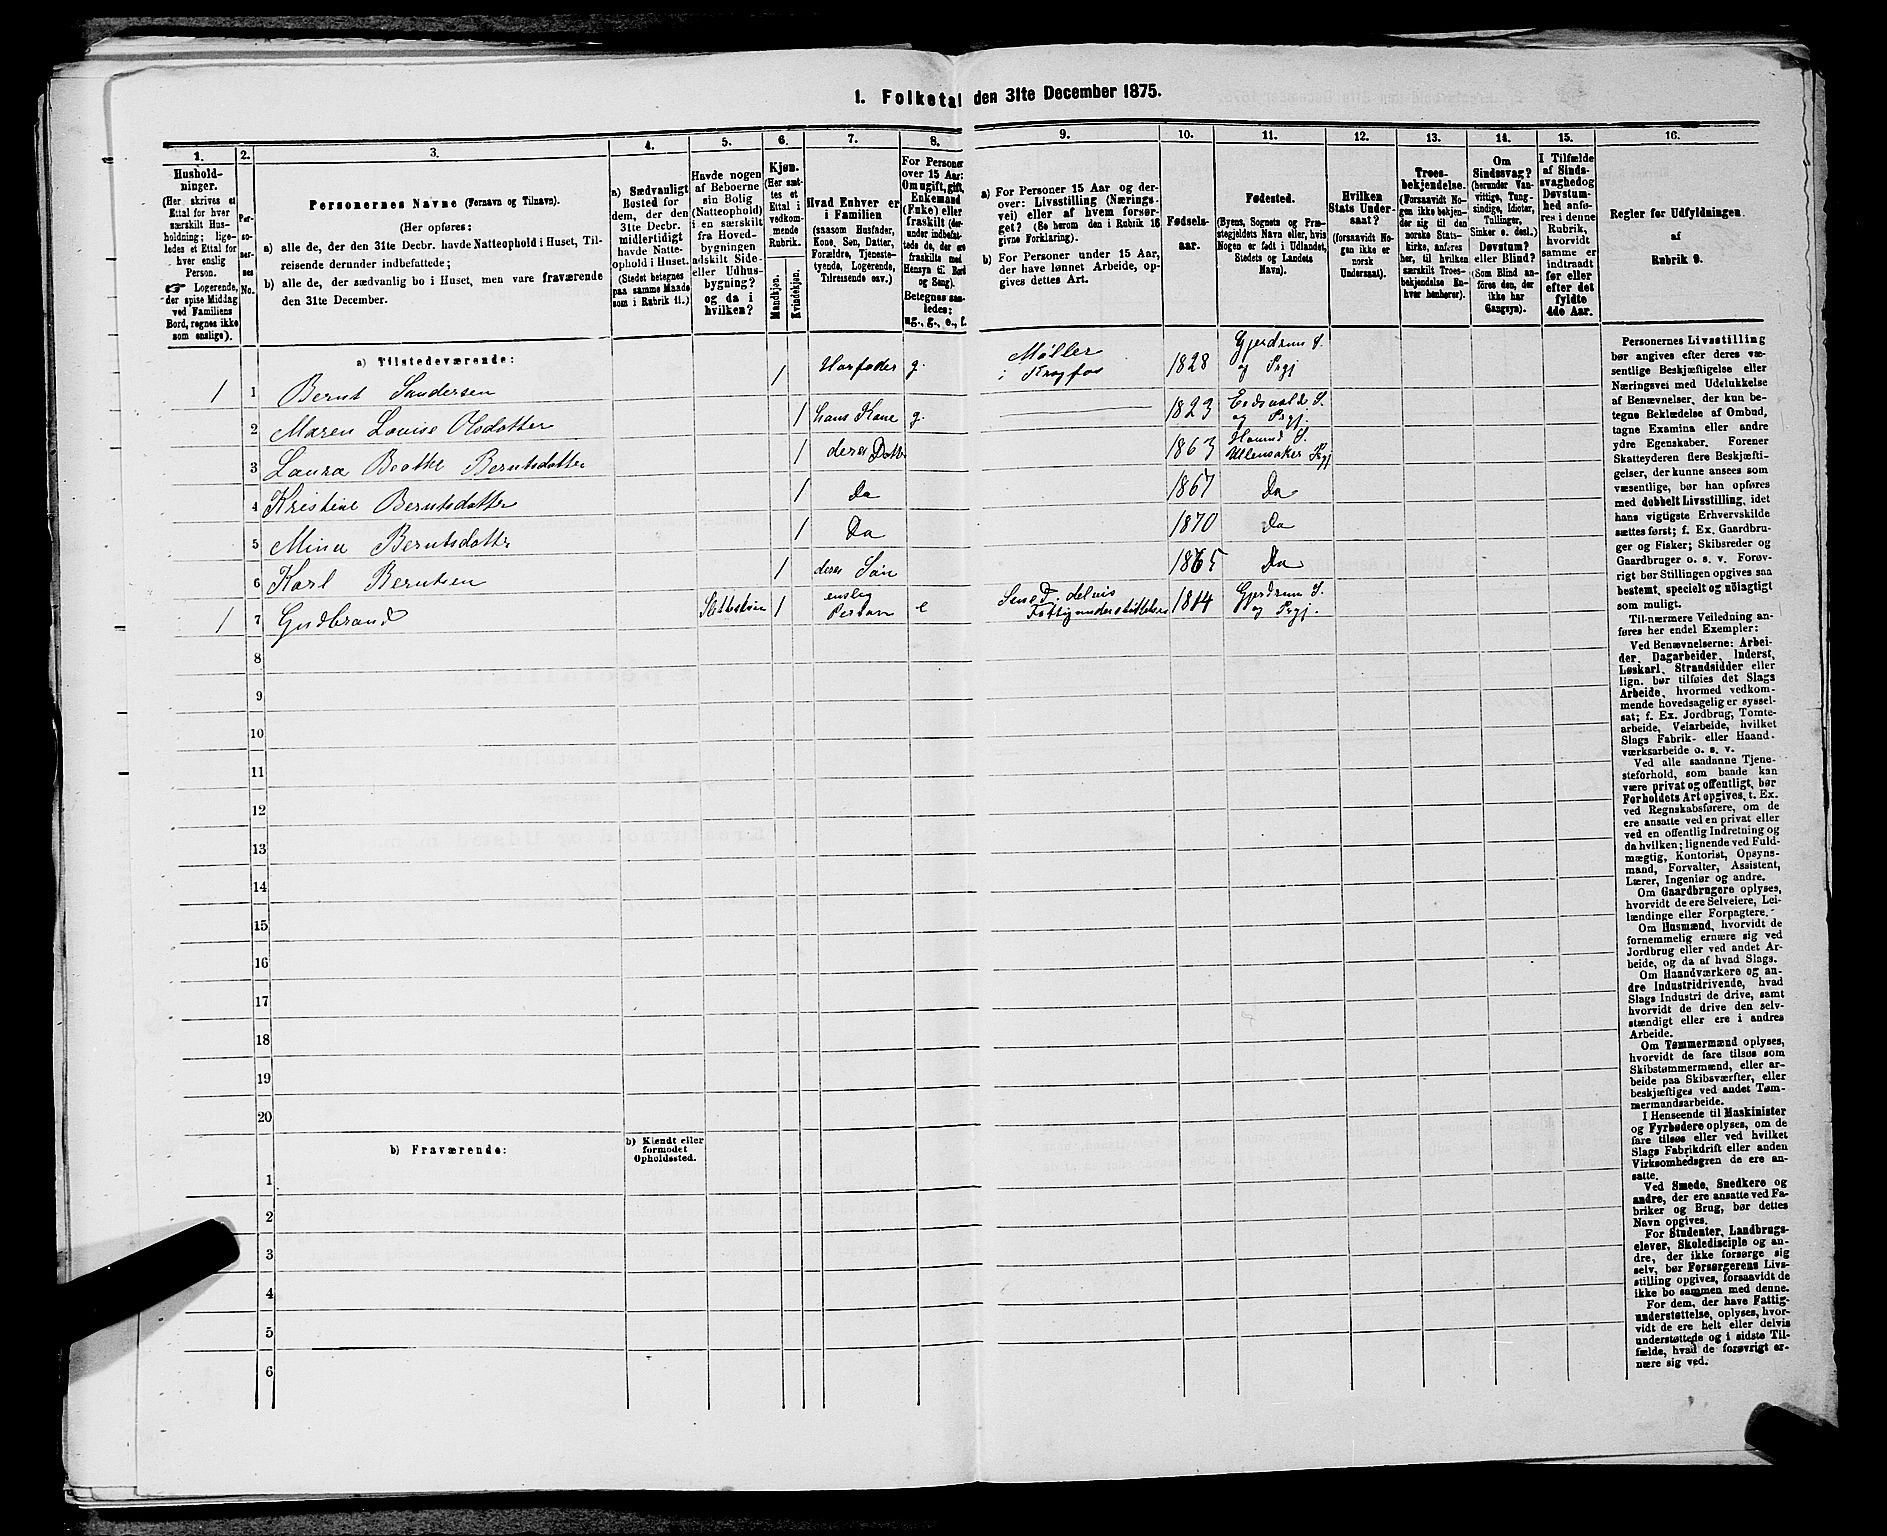 1. Folketal den 31te December 1875.
1.
2.
3.
4.
5.
6.
7.
8.
9.
10.
11.
12.
13.
14.
15.
16.
Hushold-
ninger.
(Her skrives et
Ettal for hver
særskilt Hus-
holdning; lige-
ledes et Ettal for
hver enslig
Person.
☞ Logerende,
der spise Middag
ved Familiens
Bord, regnes ikke
som enslige).
Per-
so-
ner-
nes
No.
Personernes Navne (Fornavn og Tilnavn).
(Her opføres:
a) alle de, der den 31te Decbr. havde Natteophold i Huset, Til-
reisende derunder indbefattede;
b) alle de, der sædvanlig bo i Huset, men vare fraværende
den 31te December.
a) Sædvanligt
Bosted for
dem, der den
31te Decbr.
midlertidigt
havde Natte-
ophold i Huset.
(Stedet betegnes
paa samme Maade
som i Rubrik 11.)
Havde nogen
af Beboerne
sin Bolig
(Natteophold)
i en særskilt
fra Hoved-
bygningen
adskilt Side-
eller Udhus-
bygning?
og da i
hvilken?
Kjøn.
(Her sæt-
tes et
Ettal i
vedkom-
mende
Rubrik.
Mandkjøn.
Kvindekjøn.
Hvad Enhver er
i Familien
(saasom Husfader,
Kone, Søn, Datter,
Forældre, Tjeneste-
tyende, Logerende,
Tilreisende osv.)
For Personer
over 15 Aar:
Om ugift, gift,
Enkemand
(Enke) eller
fraskilt (der-
under indbefat-
tede de, der ere
fraskilte med
Hensyn til Bord
og Seng).
Betegnes saa-
ledes:
ug., g., e., f.
a) For Personer 15 Aar og der-
over: Livsstilling (Nærings-
vei) eller af hvem forsør-
get? (Se herom den i Rubrik 16
givne Forklaring).
b) For Personer under 15 Aar,
der have lønnet Arbeide, op-
gives dettes Art.
Fødsels-
aar.
Fødested.
(Byens, Sognets og Præ-
stegjeldets Navn eller, hvis
Nogen er født i Udlandet,
Stedets og Landets
Navn).
Hvilken
Stats Under-
saat?
(forsaavidt No-
gen ikke er
norsk
Undersaat).
Troes-
bekjendelse.
(Forsaavidt No-
gen ikke bekjen-
der sig til den
norske Stats-
kirke, anføres
her, til hvilken
særskilt Troes-
bekjendelse En-
hver henhører).
Om
Sindssvag?
(herunder Van-
vittige, Tung-
sindige, Idioter,
Tullinger,
Sinker o. desl.).
Døvstum?
eller Blind?
(Som Blind an-
føres den, der
ikke har
Gangsyn).
I Tilfælde
af Sinds-
svaghed og
Døvstum-
hed anfø-
res i denne
Rubrik,
hvorvidt
samme er
indtraadt
før eller
efter det
fyldte
4de Aar.
Regler for Udfyldningen
af
Rubrik 9.
a) Tilstedeværende:
1 1 Bernt Sandersen 1 Husfader g. Møller i Krogfos 1828 Gjerdrum S. og Prgj
2 Maren Lovise Olsdatter 1 hans Kone g. 1823 Eidsvold S. og Prgj.
3 Laura Beathe Berntsdatter 1 deres Datt. 1863 Hovind S. Ullensaker Prgj
4 Kristine Berntsdatter 1 Do 1867 Do
5 Mina Berntsdatter 1 Do 1870 Do
6 Karl Berntsen 1 deres Søn 1865 Do
1 7 Gudbrand 1 enslig Person e delvis Fattigunderstøttelse 1814 Gjerdrum S. og Prgj.
8
9
10
11
12
13
14
15
16
17
18
19
20
b) Fraværende:
b) Kjendt eller
formodet
Opholdssted.
1
2
3
4
5
6
Personernes Livsstilling
bør angives efter deres væ-
sentlige Beskjæftigelse eller
Næringsvei med Udelukkelse
af Benævnelser, der kun be-
tegne Beklædelse af Ombud,
tagne Examina eller andre
ydre Egenskaber. Forener
Skatteyderen flere Beskjæfti-
gelser, der kunne ansees som
væsentlige, bør han opføres
med dobbelt Livsstilling, idet
hans vigtigste Erhvervskilde
sættes først; f. Ex. Gaardbru-
ger og Fisker; Skibsreder og
Gaardbruger o. s. v. Forøv-
rigt bør Stillingen opgives saa
bestemt, specielt og nöiagtigt
som muligt.
Til nærmere Veiledning an-
føres her endel Exempler:
Ved Benævnelserne: Arbei-
der, Dagarbeider, Inderst,
Løskarl, Strandsidder eller
lign. bør tilføies det Slags
Arbeide, hvormed vedkom-
mende hovedsagelig er syssel-
sat; f. Ex. Jordbrug, Tomte-
arbeide, Veiarbeide, hvilket
Slags Fabrik- eller Haand-
værksarbeide o. s. v.
Ved alle saadanne Tjene-
steforhold, som baade kan
være privat og offentligt, bør
Forholdets Art opgives, t. Ex.
ved Regnskabsførere, om de
ere ansatte ved en privat eller
ved en offentlig Indretning og
da hvilken; lignende ved Fuld-
mægtig, Kontorist, Opsyns-
mand, Forvalter, Assistent,
Lærer, Ingeniør og andre.
Om Gaardbrugere oplyses,
hvorvidt de ere Selveiere, Lei-
lændinge eller Forpagtere.
Om Husmænd, hvorvidt de
fornemmelig ernære sig ved
Jordbrug eller ved andet Ar-
beide, og da af hvad Slags.
Om Haandværkere og an-
dre Industridrivende, hvad
Slags Industri de drive, samt
hvorvidt de drive den selv-
stændigt eller ere i andres
Arbeide.
Om Tømmermænd oplyses,
hvorvidt de fare tilsøs som
Skibstømmermænd, eller ar-
beide paa Skibsværfter, eller
beskjæftiges ved andet Tøm-
mermandsarbeide.
I Henseende til Maskinister
og Fyrbødere oplyses, om de
fare tilsøs eller ved hvilket
Slags Fabrikdrift eller anden
Virksomhedsgren de ere an-
satte.
Ved Smede, Snedkere og
andre, der ere ansatte ved Fa-
briker og Brug, bør dettes
Navn opgives.
For Studenter, Landbrugs-
elever, Skoledisciple og an-
dre, der ikke forsørge sig
selv, bør Forsørgerens Livs-
stilling opgives, forsaavidt de
ikke bo sammen med denne.
For dem, der have Fattig-
understøttelse, oplyses, hvor-
vidt de ere helt eller delvis
understøttede og i sidste Til-
fælde, hvad de forøvrigt er-
nære sig ved.